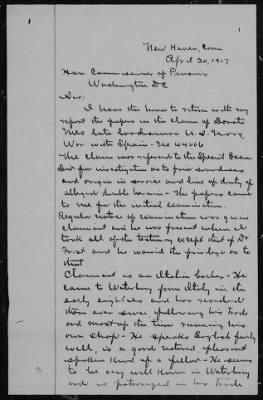 New Haven, Conn
April 30, 1907
Hon Commissioner of Pensions
Washington DC
Sir:
I have the honor to return with my
report the papers in the claim of Donato
Meo late landsman U.S. Navy,
War with Spain - No 44006
The claim was referred to the Special Exam.
Div for investigation as to prior soundness
and origin in service and line of duty of
alleged double hernia - The papers came
to me for the initial examination.
Regular notice of examination was given
claimant and he was present when I
took all of the testimony except that of Dr
Frost and he waived the privilege as to
that
Claimant is an Italian barber - He
came to Waterbury from Italy in the
early eighties and has resided
there ever since following his trade
and most of the time running his
own shop - He speaks English fairly
well, is a good natured, pleasant
spoken kind of a fellow - He seems
to be very well known in Waterbury
and is patronized in his trade